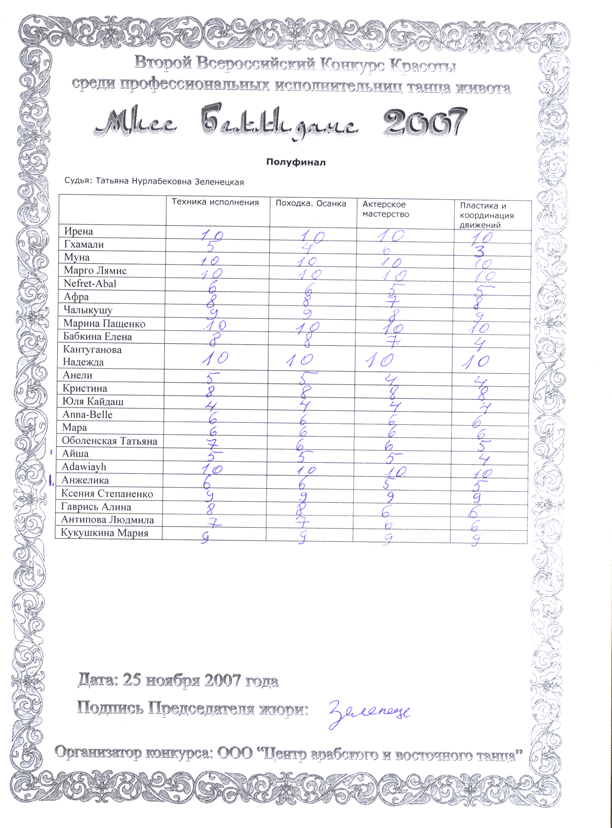 Второй Всероссийский Конкурс Красоты
среди профессиональных исполнительниц танца живота
Мисс Беллиданс 2007
Полуфинал
Судья: Татьяна Нурлабековна Зеленецкая
Техника исполнения Походка. Осанка Актерское мастерство Пластика и координация движений
Ирена 10 10 10 10
Гхамали 5 4 6 3
Муна 10 10 10 10
Марго Лямис 10 10 10 10
Nefret-Abal 6 6 5 5
Афра 8 8 7 8
Чалыкушу 9 9 8 9
Марина Пащенко 10 10 10 10
Бабкина Елена 8 8 7 4
Кантуганова Надежда 10 10 10 10
Анели 5 5 4 4
Кристина 8 8 8 8
Юля Кайдаш 4 4 4 7
Anna-Belle 6 6 6 6
Мара 6 6 6 6
Оболенская Татьяна 7 6 6 5
Айша 5 5 5 4
Adawiayh 10 10 10 10
Анжелика 6 6 5 5
Ксения Степаненко 9 9 9 9
Гаврись Алина 8 8 6 6
Антипова Людмила 7 7 6 6
Кукушкина Мария 9 9 9 9
Дата: 25 ноября 2007 года
Подпись Председателя жюри:
Организатор конкурса: ООО “Центр арабского и восточного танца”